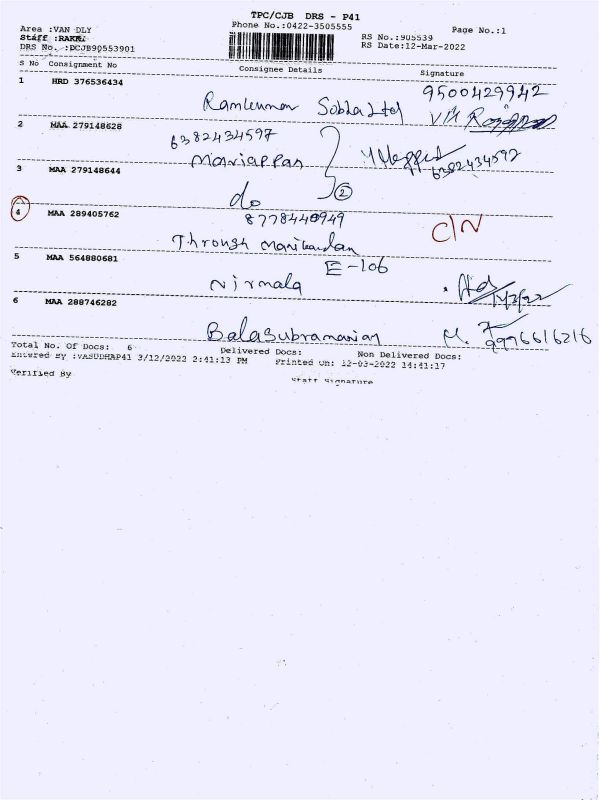 TPC/CJB DRS - P41
Area :VAN DLY
Phone No.:0422-3505555
Page No.:1
Staff :RAKKI
RS No.:905539
DRS No. :DCJB90553901
RS Date:12-Mar-2022
S No Consignment No Consignee Details Signature
1 HRD 376536434
9500429942
Ramkumar Sobha Ltd
2 MAA 279148628
6382434597
Mariappan
6382434597
3 MAA 279148644
2
do
4 MAA 289405762
8778440949
C/N
Through Manikandan
5 MAA 564880681
E-106
Nirmala
6 MAA 288746282
Balasubramanian
M.
9976616216
Total No. Of Docs: 6 Delivered Docs: Non Delivered Docs:
Entered By :VASUDHAP41 3/12/2022 2:41:13 PM Printed On: 12-03-2022 14:41:17
Verified By
Staff Signature